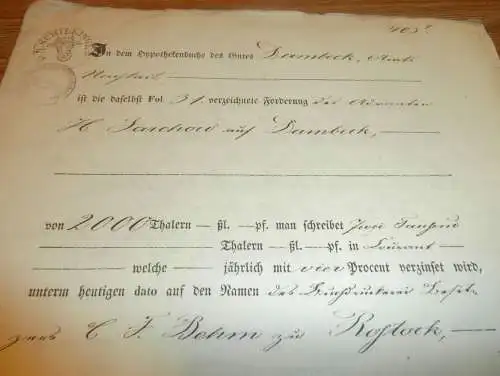 SCHILLING
403
In dem Hypothekenbuche des Gutes Dambeck, Amts
ist die daselbst Fol 31. verzeichnete Forderung des
H. Sarchow auf Dambeck,
von 2000 Thalern — ßl. —pf. man schreibet Zwei Tausend
Thalern —ßl. —pf. in Courant
welche — jährlich mit vier Procent verzinset wird,
unterm heutigen dato auf den Namen des Buchdruckerei Besit-
zers C. F. Behm zu Rostock,